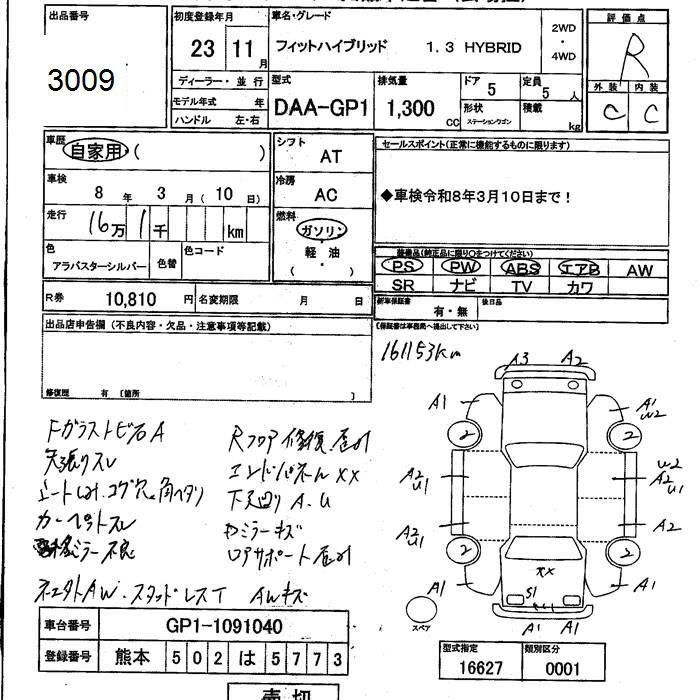 出品番号
3009
初度登録年月
23 11月
車名・グレード
フィットハイブリッド 1.3 HYBRID
2WD
・
4WD
評価点
R
外装 内装
C C
ディーラー・並行
モデル年式 年
ハンドル 左・右
型式
DAA-GP1
排気量
1,300 CC
ドア 5
定員 5 人
形状 ステーションワゴン
積載 kg
車歴
自家用 ( )
車検
8 年 3 月 ( 10 日)
走行
16万 1千 km
色
アラバスターシルバー
色替
色コード
シフト
AT
冷房
AC
燃料
ガソリン
軽油
( ・ )
セールスポイント(正常に機能するものに限ります)
◆車検令和8年3月10日まで!
装備品(純正品に限り○をつけてください)
PS PW ABS エアB AW
SR ナビ TV カワ
新車保証書 有・無
後日品
(保証書は事務局へ提出して下さい)
R券 10,810 円
名変期限 月 日
出品店申告欄(不良内容・欠品・注意事項等記載)
修復歴 有 (箇所 )
161153km
Fガラストビ石A
天張りスレ
シートしみ、コゲ穴、角ヘタリ
カーペットスレ
ミラー不良
Rフロア修復、歪み
エンドパネルXX
下廻りA.U
ロアサポート歪み
スタッドレスT AWキズ
A3 A2
A1 A1
W2
2 2
A2 U1
U2 A2 U1
A2 U1
A2
2 2
XX
S1
A1 A1
A1 A1
スペア
車台番号 GP1-1091040
登録番号 熊本 502 は 5773
型式指定 類別区分
16627 0001
売切